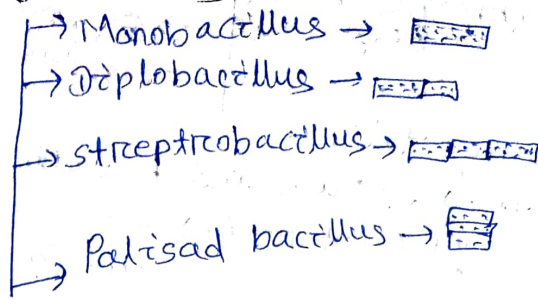 → Monobacillus →
→ Diplobacillus →
→ streptrobacillus →
→ Palisad bacillus →